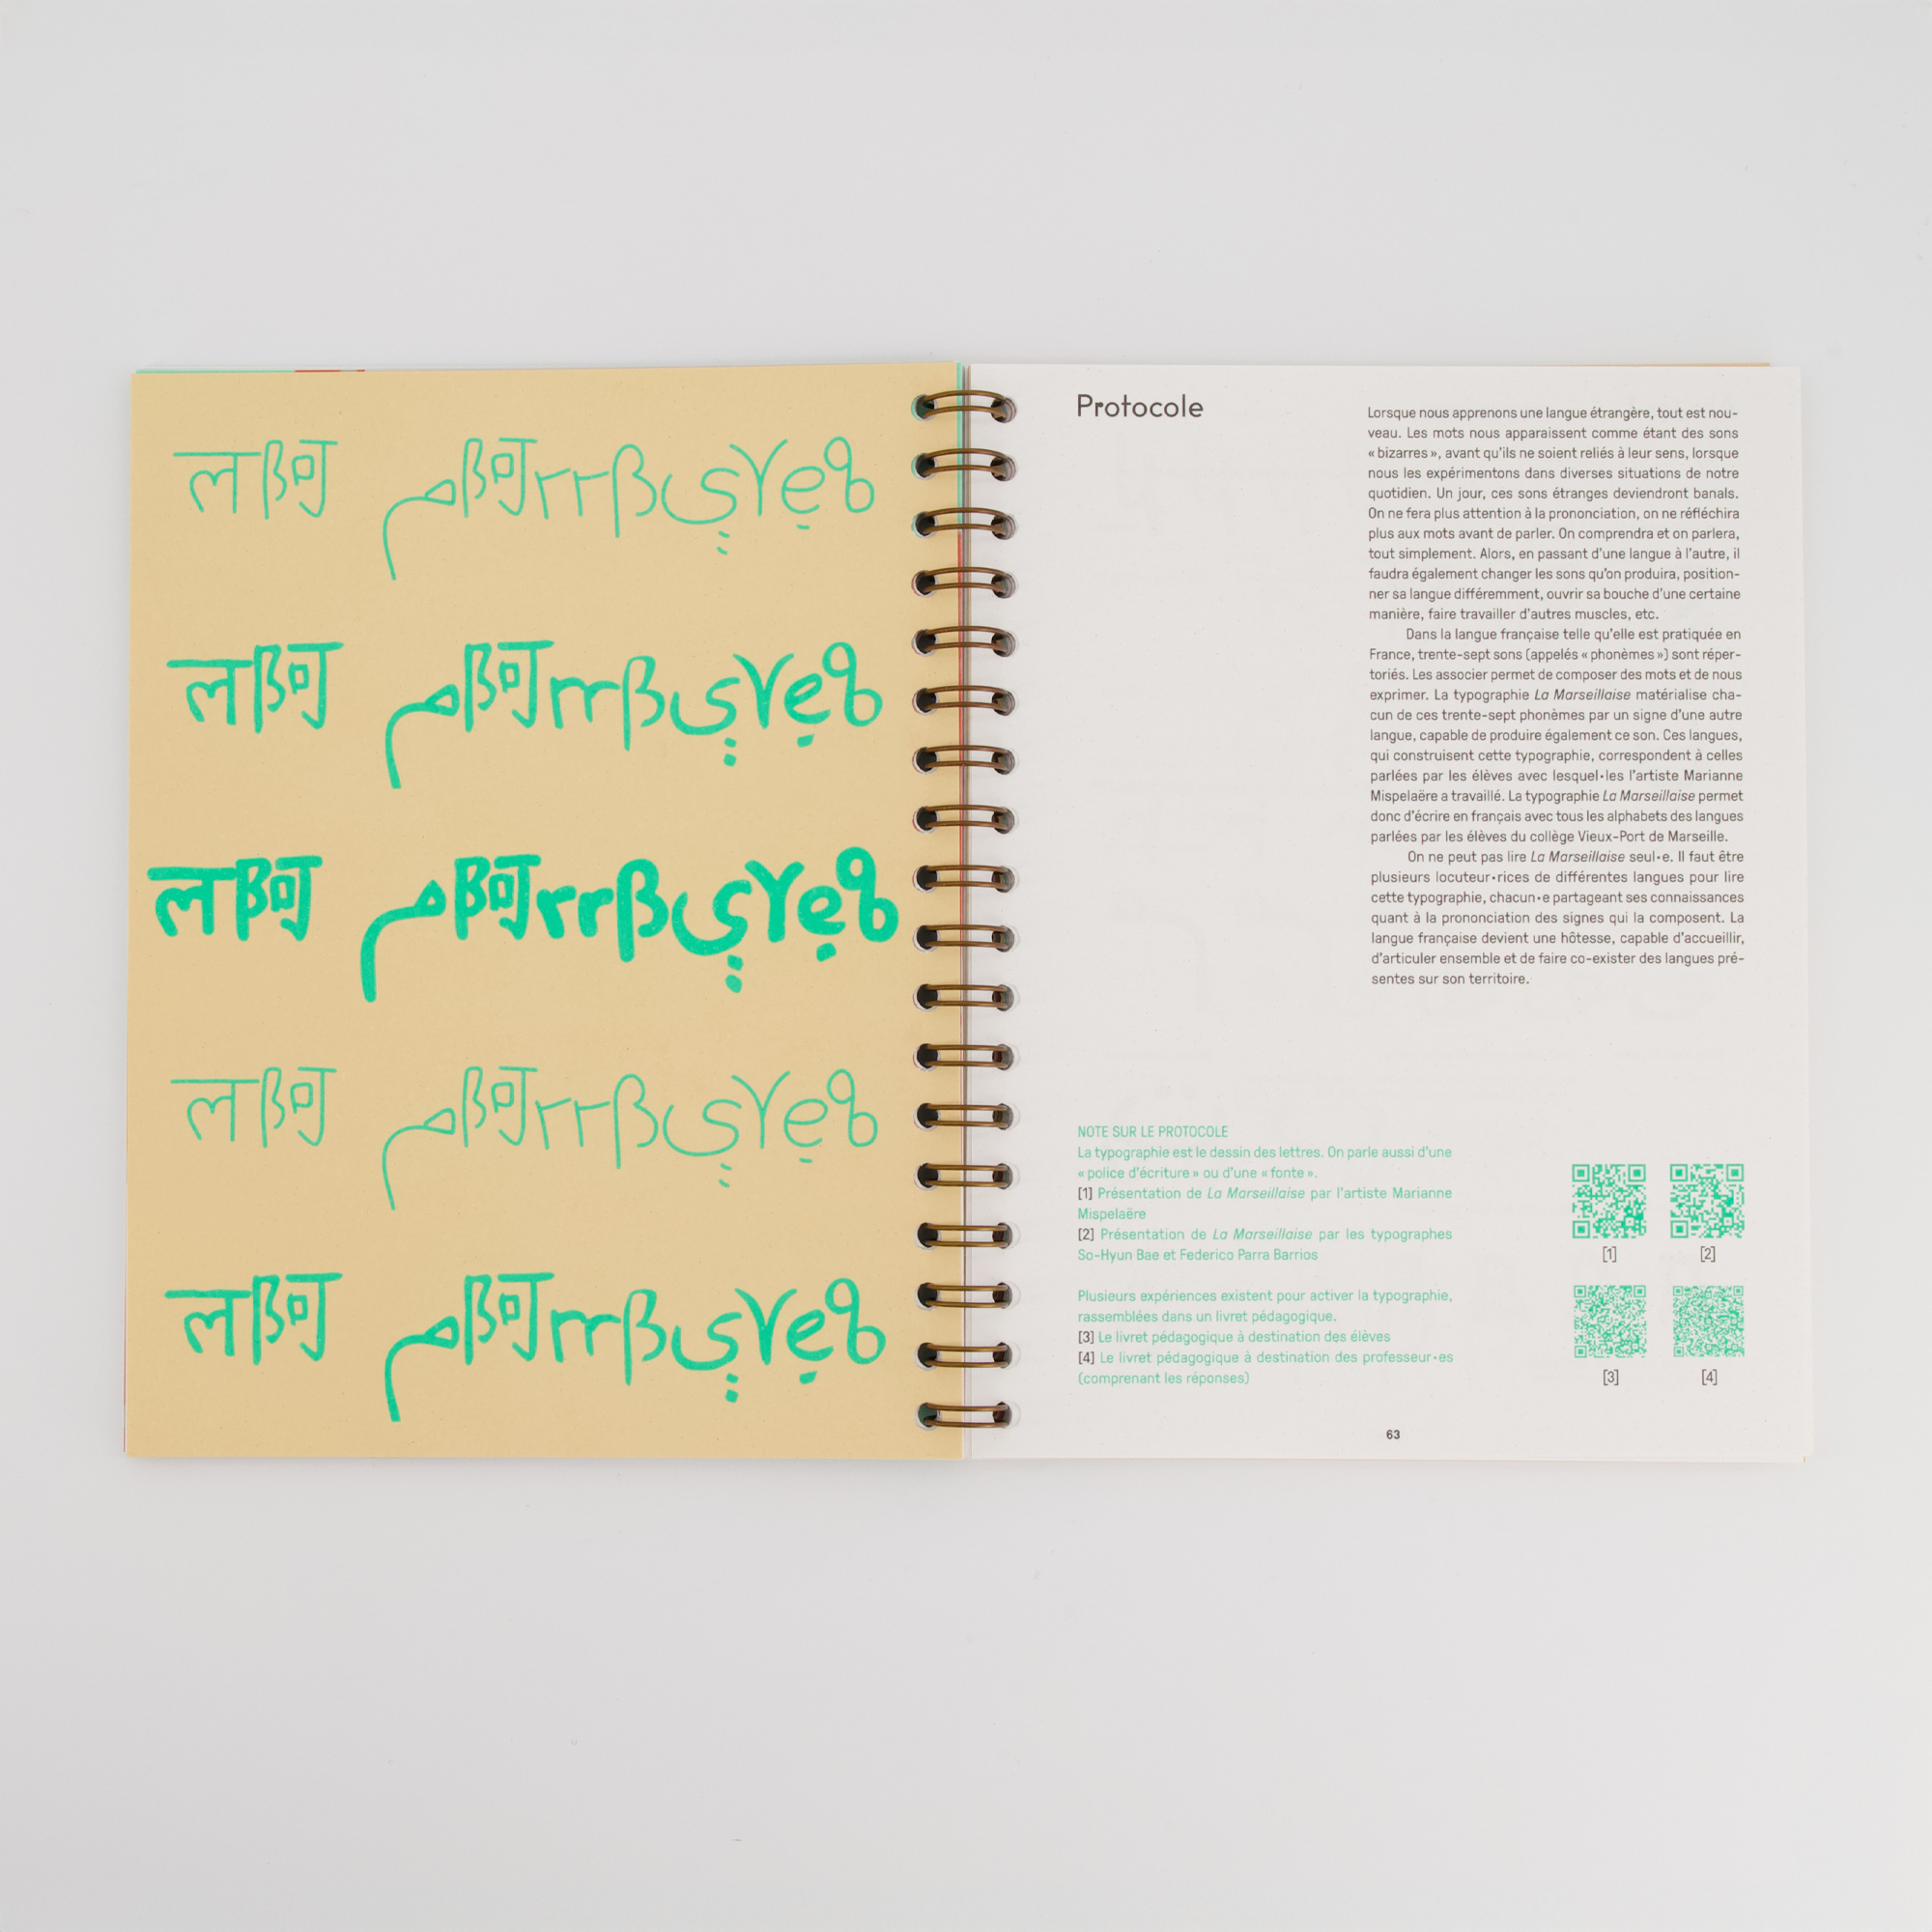 Protocole
Lorsque nous apprenons une langue étrangère, tout est nou-
veau. Les mots nous apparaissent comme étant des sons
« bizarres », avant qu'ils ne soient reliés à leur sens, lorsque
nous les expérimentons dans diverses situations de notre
quotidien. Un jour, ces sons étranges deviendront banals.
On ne fera plus attention à la prononciation, on ne réfléchira
plus aux mots avant de parler. On comprendra et on parlera,
tout simplement. Alors, en passant d'une langue à l'autre, il
faudra également changer les sons qu'on produira, position-
ner sa langue différemment, ouvrir sa bouche d'une certaine
manière, faire travailler d'autres muscles, etc.
Dans la langue française telle qu'elle est pratiquée en
France, trente-sept sons (appelés « phonèmes ») sont réper-
toriés. Les associer permet de composer des mots et de nous
exprimer. La typographie La Marseillaise matérialise cha-
cun de ces trente-sept phonèmes par un signe d'une autre
langue, capable de produire également ce son. Ces langues,
qui construisent cette typographie, correspondent à celles
parlées par les élèves avec lesquel·les l'artiste Marianne
Mispelaëre a travaillé. La typographie La Marseillaise permet
donc d'écrire en français avec tous les alphabets des langues
parlées par les élèves du collège Vieux-Port de Marseille.
On ne peut pas lire La Marseillaise seul·e. Il faut être
plusieurs locuteur·rices de différentes langues pour lire
cette typographie, chacun·e partageant ses connaissances
quant à la prononciation des signes qui la composent. La
langue française devient une hôtesse, capable d'accueillir,
d'articuler ensemble et de faire co-exister des langues pré-
sentes sur son territoire.
NOTE SUR LE PROTOCOLE
La typographie est le dessin des lettres. On parle aussi d'une
« police d'écriture » ou d'une « fonte ».
[1] Présentation de La Marseillaise par l'artiste Marianne
Mispelaëre
[2] Présentation de La Marseillaise par les typographes
So-Hyun Bae et Federico Parra Barrios
Plusieurs expériences existent pour activer la typographie,
rassemblées dans un livret pédagogique.
[3] Le livret pédagogique à destination des élèves
[4] Le livret pédagogique à destination des professeur·es
(comprenant les réponses)
[1] [2]
[3] [4]
63